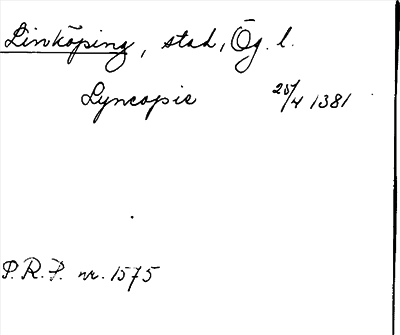 Linköping, stad, Ög. l.
Lyncopie 25/4 1381
P.R.F. nr. 1575